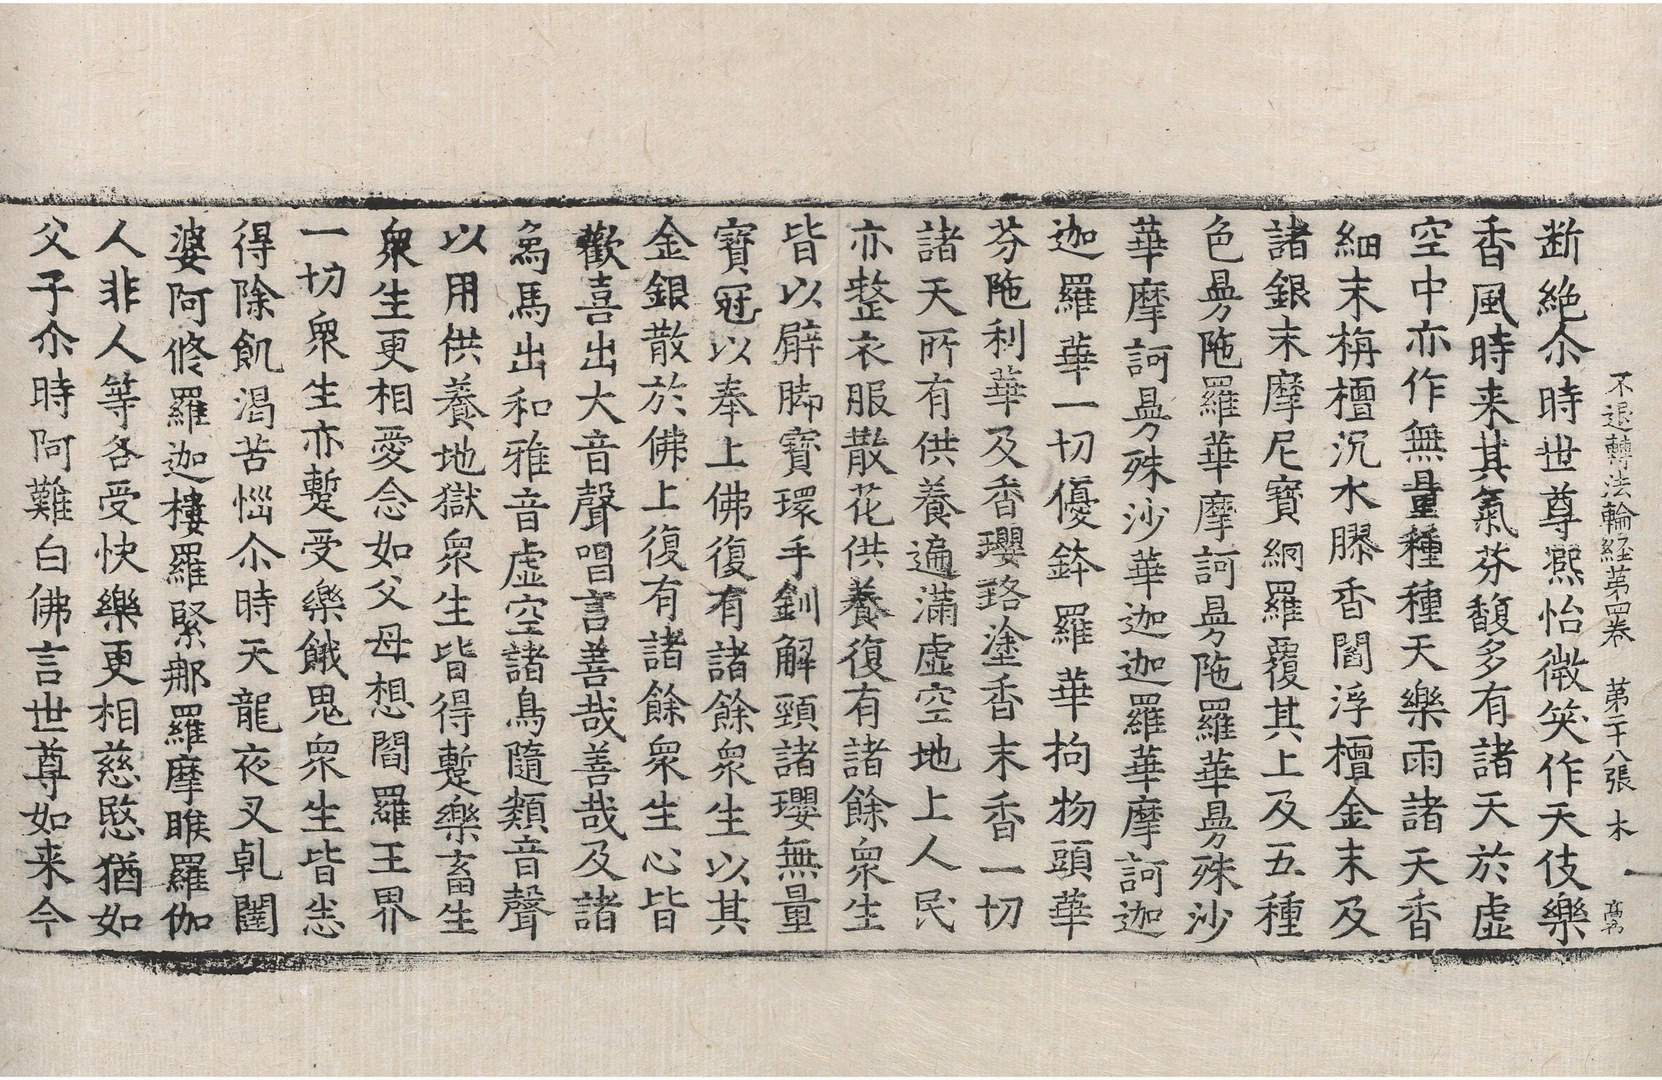 不退轉法輪経第四卷　第二十八張　木
断絶尒時世尊熈怡微笑作天伎樂
香風時来其氣芬馥多有諸天於虚
空中亦作無量種種天樂雨諸天香
細末栴檀沉水膠香閻浮檀金末及
諸銀末摩尼寶網羅覆其上及五種
色曼陁羅華摩訶曼陁羅華曼殊沙
華摩訶曼殊沙華迦迦羅華摩訶迦
迦羅華一切優鉢羅華拘物頭華
芬陁利華及香瓔珞塗香末香一切
諸天所有供養遍滿虚空地上人民
亦整衣服散花供養復有諸餘衆生
皆以臂腨寶環手釧解頸諸瓔無量
寶冠以奉上佛復有諸餘衆生以其
金銀散於佛上復有諸餘衆生心皆
歡喜出大音聲唱言善哉善哉及諸
烏馬出和雅音虚空諸鳥隨類音聲
以用供養地獄衆生皆得蹔樂畜生
衆生更相愛念如父母想閻羅王界
一切衆生亦蹔受樂餓鬼衆生皆悉
得除飢渴苦惱尒時天龍夜叉乹闥
婆阿脩羅迦樓羅緊那羅摩睺羅伽
人非人等各受快樂更相慈愍猶如
父子尒時阿難白佛言世尊如来今